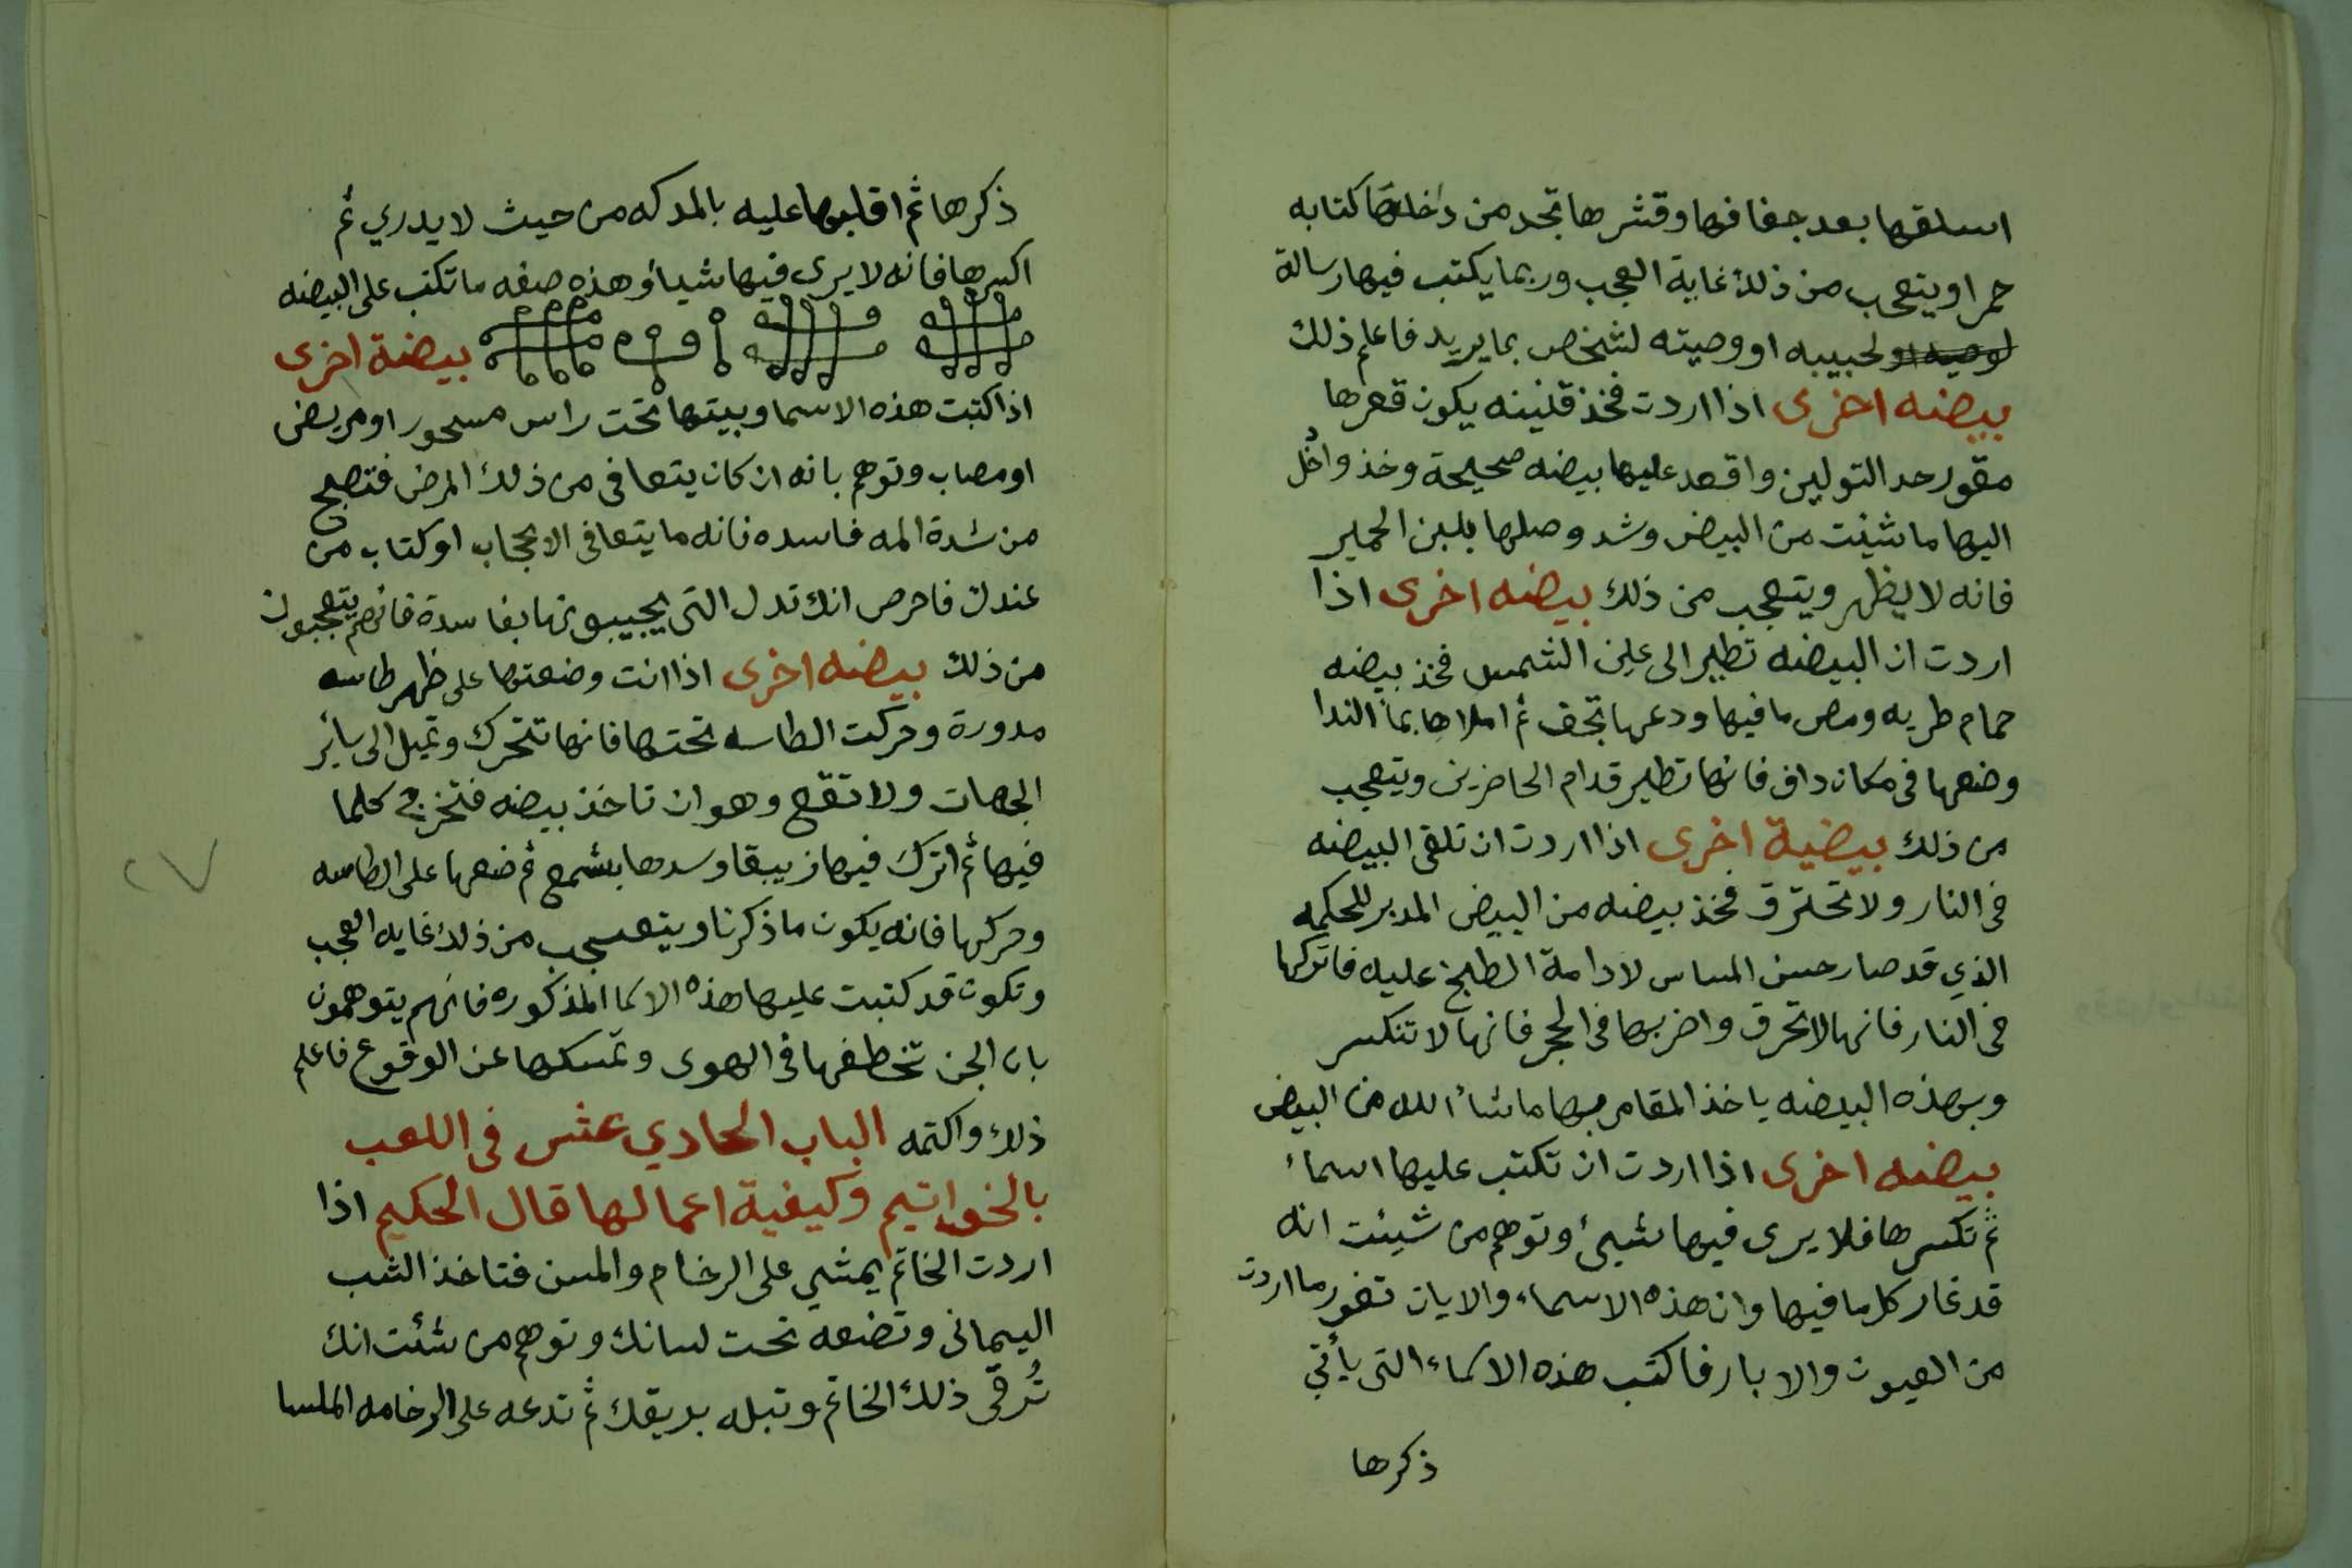 اسلقها بعد جفافها وقشرها تجد من داخلها كتابه
حمرا ويتعجب من ذلك غاية العجب وربما يكتب فيها رسالة
لحبيبه او وصيته لشخص بما يريد فاعلم ذلك
بيضه اخرى اذا اردت فخذ قنينه يكون قعرها
مقور حد التولين واقعد عليها بيضه صحيحة وخذ وادخل
اليها ما شئت من البيض وشد وصلها بلبن الحمير
فانه لا يظهر ويتعجب من ذلك بيضه اخرى اذا
اردت ان البيضه تطير الى عين الشمس فخذ بيضه
حمام طريه ومص ما فيها ودعها تجف ثم املاها بمأ الندا
وضعها فى مكان دافى فانها تطير قدام الحاضرين ويتعجب
من ذلك بيضية اخرى اذا اردت ان تلقى البيضه
فى النار ولا تحترق فخذ بيضه من البيض المدبر للحكمه
الذي قد صار حسن المساس لادامة الطبخ عليه فاتركها
فى النار فانها لا تحرق واضربها فى الحجر فانها لا تنكسر
وبهذه البيضه ياخذ المقامر بها ما شأ الله من البيض
بيضه اخرى اذا اردت ان تكتب عليها اسمأ
ثم تكسرها فلا يرى فيها شيئ وتوهم من شيئت انه
قد غار كل ما فيها وان هذه الاسماء والايات تغور ما اردت
من العيون والابار فاكتب هذه الاسماء التى يأتي
ذكرها
ذكرها ثم اقلبها عليه بالمدكه من حيث لا يدري ثم
اكسرها فانه لا يرى فيها شيأ وهذه صفه ما تكتب على البيضه
بيضة اخرى
اذا كتبت هذه الاسما وبيتها تحت راس مسحور او مريض
او مصاب وتوهم بانه ان كان يتعافى من ذلك المرض فتصبح
من شدة المه فاسده فانه ما يتعافى الا بحجاب او كتاب من
عندك فاحرص انك تدل التى يجيبونها بفاسدة فانهم يتعجبون
من ذلك بيضه اخرى اذا انت وضعتها على ظهر طاسه
مدورة وحركت الطاسه تحتها فانها تتحرك وتميل الى سائر
الجهات ولا تقع وهو ان تاخذ بيضه فتخرج كلما
فيها ثم اترك فيها زيبقا وسدها بشمع ثم ضعها على الطاسه
وحركها فانه يكون ما ذكرنا ويتعجب من ذلك غايه العجب
وتكون قد كتبت عليها هذه الاسما المذكوره فانهم يتوهمون
بان الجن تخطفها فى الهوى وتمسكها عن الوقوع فاعلم
ذلك واكتمه الباب الحادي عشر فى اللعب
بالخواتيم وكيفية اعمالها قال الحكيم اذا
اردت الخاتم يمشي على الرخام والمسن فتاخذ الشب
اليمانى وتضعه تحت لسانك وتوهم من شئت انك
تُرقى ذلك الخاتم وتبله بريقك ثم تدعه على الرخامه الملسا
٢٧